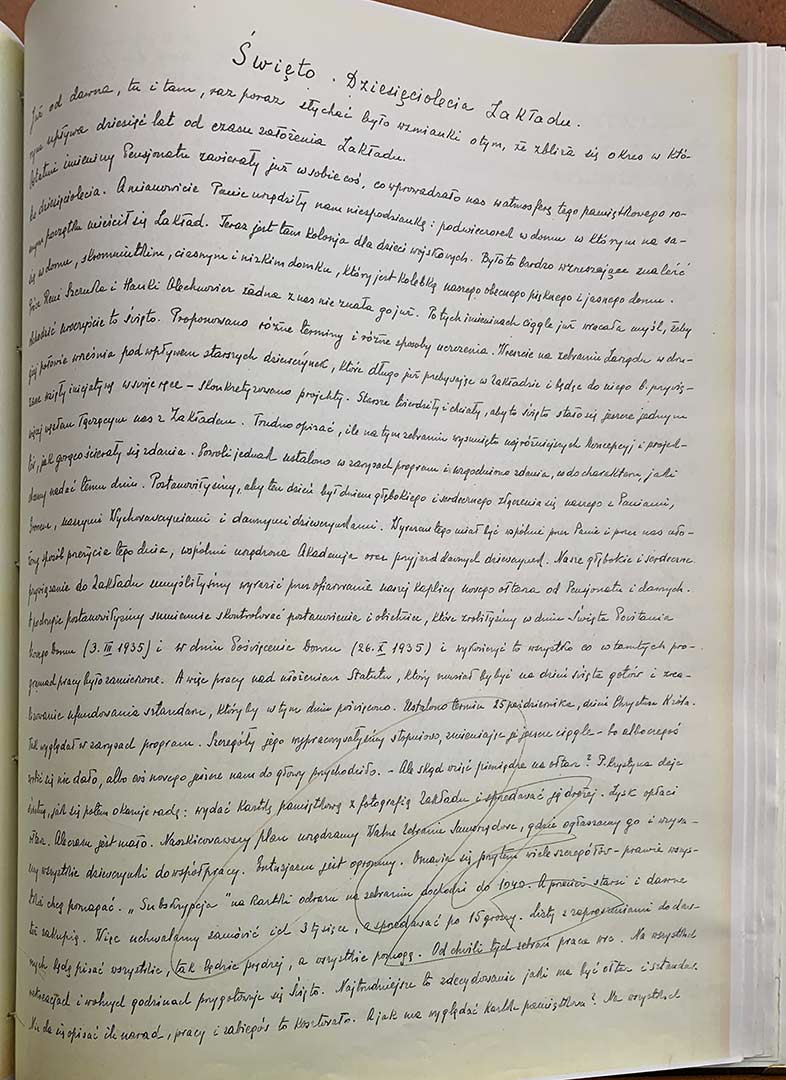 Święto Dziesięciolecia Zakładu.
Już od dawna, tu i tam, raz poraz słychać było wzmianki o tym, że zbliża się okres w któ-
rym upływa dziesięć lat od czasu założenia Zakładu.
Ostatnie imieniny Pensjonatu zawierały już w sobie coś, co wprowadzało nas w atmosferę tego pamiątkowego ro-
ku dziesięciolecia. A mianowicie Panie urządziły nam niespodziankę: podwieczorek w domu w którym na sa-
mym początku mieścił się Zakład. Teraz jest tam Kolonja dla dzieci wojskowych. Było to bardzo wzruszające znaleźć
się w domu, skromniutkim, ciasnym i nizkim domku, który jest kolebką naszego obecnego pięknego i jasnego domu.
Prócz Reni Szczuka i Hanki Olechnowicz żadna z nas nie znała go już. Po tych imieninach ciągle już wracała myśl, żeby
obchodzić uroczyście to święto. Proponowano różne terminy i różne sposoby uczczenia. Wreszcie na zebraniu Zarządu w dru-
giej połowie września pod wpływem starszych dziewczynek, które długo już przebywając w Zakładzie i będąc do niego b. przywią-
zane wzięły inicjatywę w swoje ręce – skonkretyzowano projekty. Starsze twierdziły i chciały, aby to święto stało się jeszcze jednym
więcej węzłem łączącym nas z Zakładem. Trudno opisać, ile na tym zebraniu wysunięto najróżniejszych koncepcyj i projek-
tów, jak gorąco ścierały się zdania. Powoli jednak ustalono w zarysach program i uzgodniono zdania, co do charakteru, jaki
chcemy nadać temu dniu. Postanowiłyśmy, aby ten dzień był dniem głębokiego i serdecznego złączenia się naszego z Paniami,
Domem, naszymi Wychowawczyniami i dawnymi dziewczynkami. Wyrazem tego miał być wspólnie przez Panie i przez nas uło-
żony sposób przeżycia tego dnia, wspólnie urządzona Akademja oraz przyjazd dawnych dziewczynek. Nasze głębokie i serdeczne
przywiązanie do Zakładu umyśliłyśmy wyrazić przez ofiarowanie naszej kaplicy nowego ołtarza od Pensjonatu i dawnych.
A podrugie postanowiłyśmy sumiennie skontrolować postanowienia i obietnice, które zrobiłyśmy w dniu Święta Powitania
Nowego Domu (3. III 1935) i w dniu Poświęcenia Domu (26. X 1935) i wykończyć to wszystko co w tamtych pro-
gramach pracy było zamierzone. A więc pracę nad ułożeniem Statutu, który musiał by być na dzień święta gotów i zrea-
lizowanie ufundowania sztandaru, który by w tym dniu poświęcono. Ustalono termin 25 października, dzień Chrystusa Króla.
Tak wyglądał w zarysach program. Szczegóły jego wypracowywałyśmy stopniowo, zmieniając je jeszcze ciągle – bo albo czegoś
zrobić się nie dało, albo coś nowego jeszcze nam do głowy przychodziło. – Ale skąd wziąć pieniądze na ołtarz? P. Krystyna daje
świetną, jak się potem okazuje radę: wydać kartkę pamiątkową z fotografią Zakładu i sprzedawać ją drożej. Zysk opłaci
ołtarz. Ale czasu jest mało. Naszkicowawszy plan urządzamy Walne Zebranie Samorządowe, gdzie ogłaszamy go i wzywa-
my wszystkie dziewczynki do współpracy. Entuzjazm jest ogromny. Omawia się przytem wiele szczegółów – prawie wszys-
tkie chcą pomagać. „Subskrypcja” na kartki odrazu na zebraniu dochodzi do 1040. A przecież starsi i dawne
też zakupią. Więc uchwalamy zamówić ich 3 tysiące, a sprzedawać po 15 groszy. Listy z zaproszeniami do daw-
nych będą pisać wszystkie, tak będzie prędzej, a wszystkie pomogą. Od chwili tych zebrań praca wre. Na wszystkich
rekreacjach i wolnych godzinach przygotowuje się Święto. Najtrudniejsze to zdecydowanie jaki ma być ołtarz i sztandar.
Nie da się opisać ile narad, pracy i zabiegów to kosztowało. A jak ma wyglądać kartka pamiątkowa? Na wszystkich